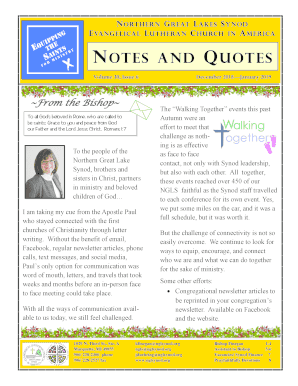 NORTHERN GREAT LAKES SYNOD
EVANGELICAL LUTHERAN CHURCH IN AMERICA
EQUIPPING
THE
SAINTS
FOR MINISTRY
NOTES AND QUOTES
December 2018 - January 2019
~From the Bishop~
To all God's beloved in Rome, who are called to
be saints: Grace to you and peace from God
our Father and the Lord Jesus Christ. Romans 1:7
To the people of the
Northern Great Lake
Synod, brothers and
sisters in Christ, partners
in ministry and beloved
children of God...
I am taking my cue from the Apostle Paul
who stayed connected with the first
churches of Christianity through letter
writing. Without the benefit of email,
Facebook, regular newsletter articles, phone
calls, text messages, and social media,
Paul's only option for communication was
word of mouth, letters, and travels that took
weeks and months before an in-person face
to face meeting could take place.
With all the ways of communication avail-
able to us today, we still feel challenged.
The "Walking Together" events this past
Autumn were an
effort to meet that
challenge as noth-
ing is as effective
as face to face
contact, not only with Synod leadership,
but also with each other. All together,
these events reached over 450 of our
NGLS faithful as the Synod staff travelled
to each conference for its own event. Yes,
we put some miles on the car, and it was a
full schedule, but it was worth it.
Walking
Together
But the challenge of connectivity is not so
easily overcome. We continue to look for
ways to equip, encourage, and connect
who we are and what we can do together
for the sake of ministry.
Some other efforts:
• Congregational newsletter articles to
be reprinted in your congregation's
newsletter. Available on Facebook
and the website.